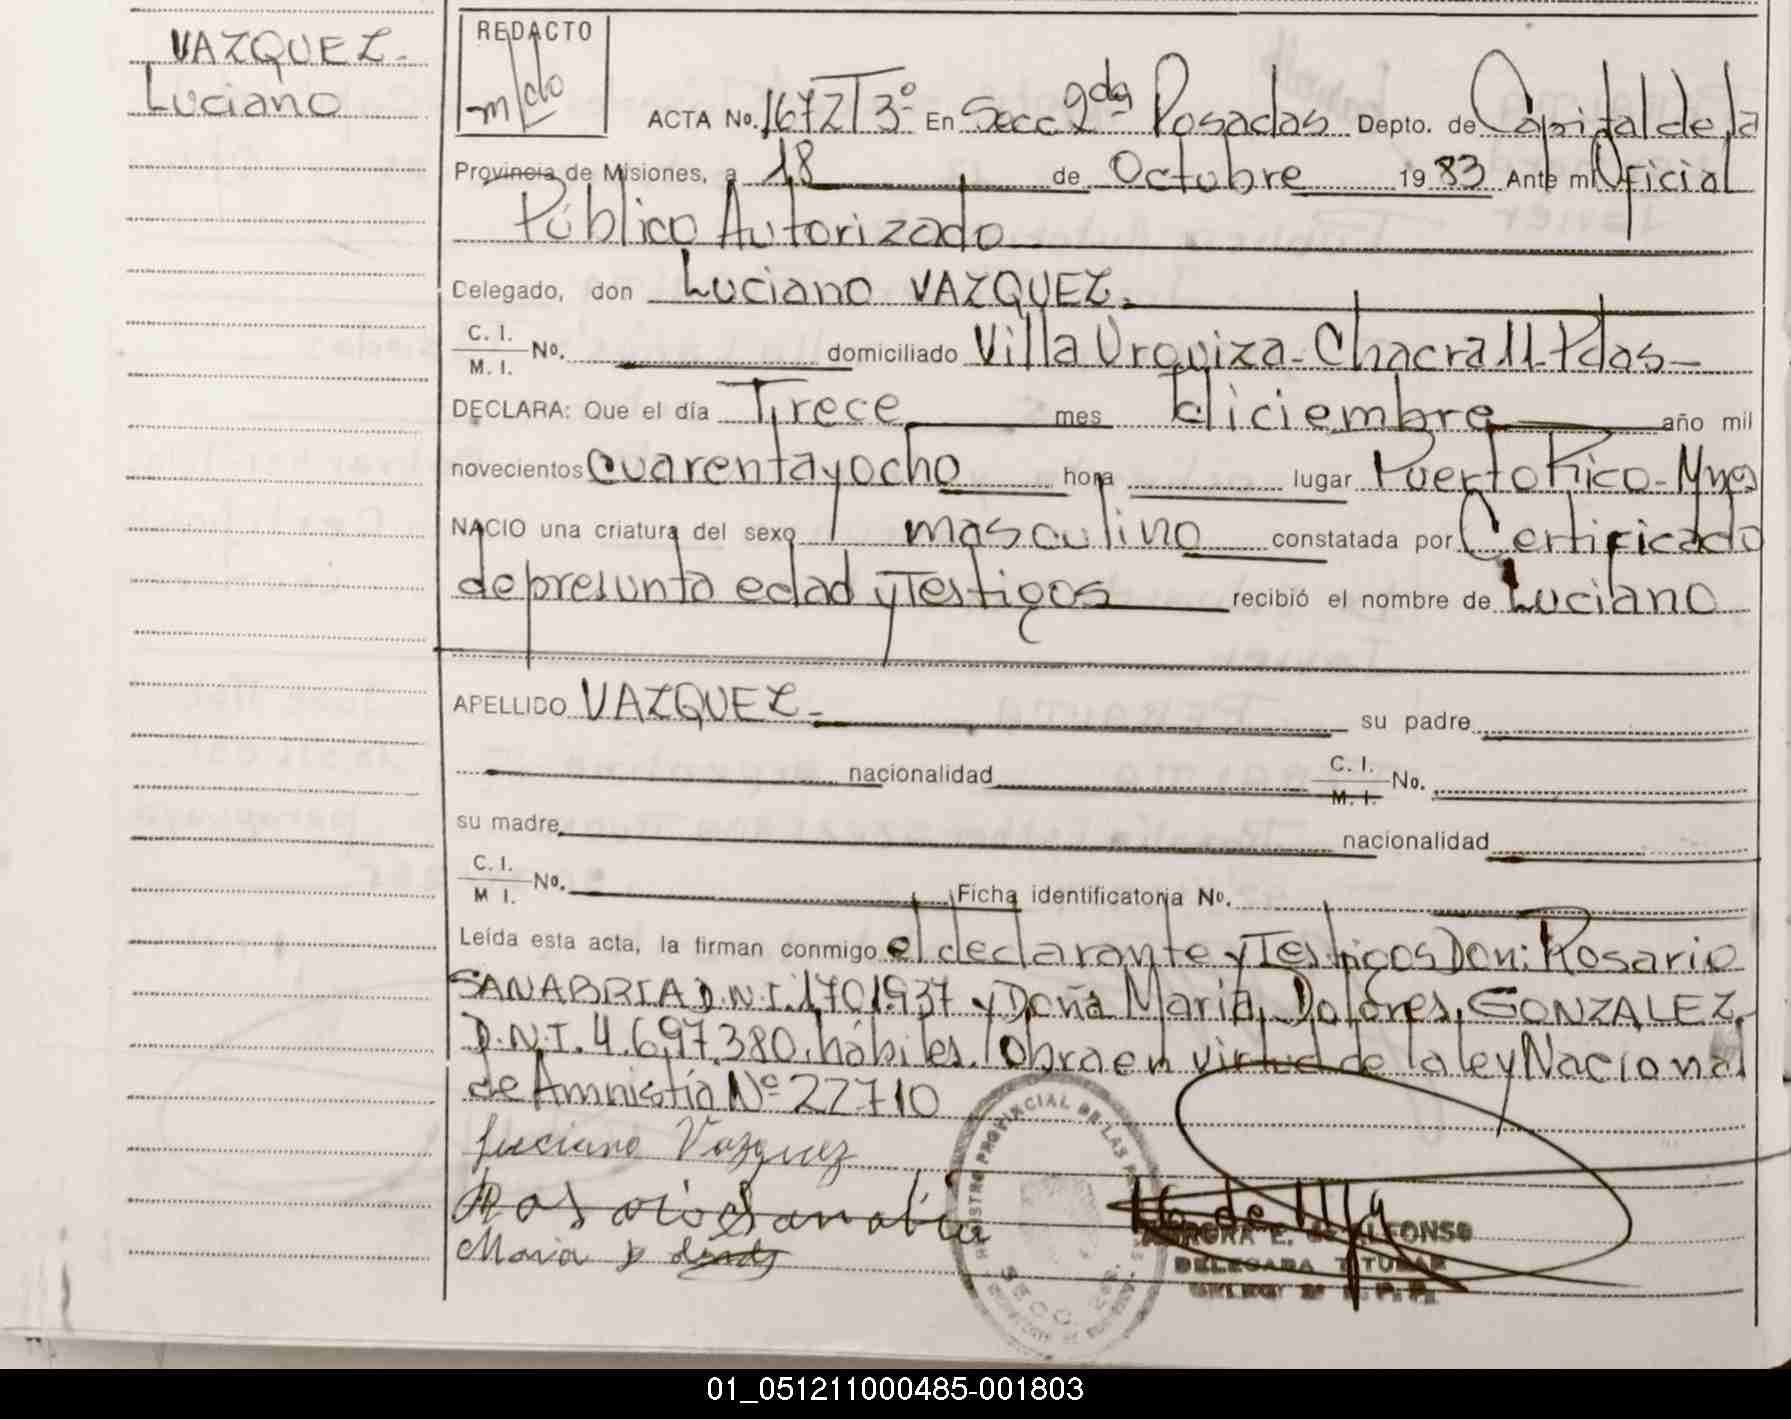 VAZQUEZ-
Luciano
REDACTO
ACTA No. 1672 T 3º En Secc 2da Posadas Depto. de Capital de la
Provincia de Misiones, a 18 de Octubre 1983 Ante mi Oficial
Público Autorizado
Delegado, don Luciano VAZQUEZ.
C. I.
M. I. No. domiciliado Villa Urquiza-Chacra 11-Pdas-
DECLARA: Que el día Trece mes diciembre año mil
novecientos cuarenta y ocho hora lugar Puerto Rico-Mnes
NACIO una criatura del sexo masculino constatada por Certificado
de presunta edad y Testigos recibió el nombre de Luciano
APELLIDO VAZQUEZ- su padre
nacionalidad C. I.
M. I. No.
su madre nacionalidad
C. I.
M I. No. Ficha identificatoria No.
Leída esta acta, la firman conmigo el declarante y Testigos Don: Rosario
SANABRIA D.N.I. 1.701.937 y Doña María Dolores GONZALEZ
D.N.I. 4.697.380, hábiles. Obra en virtud de la ley Nacional
de Amnistía Nº 22710
Luciano Vazquez
Rosario Sanabria
Maria D
REGISTRO PROVINCIAL DE LAS
SECC 2da.
AURORA E. de ALFONSO
DELEGADA TITULAR
01_051211000485-001803